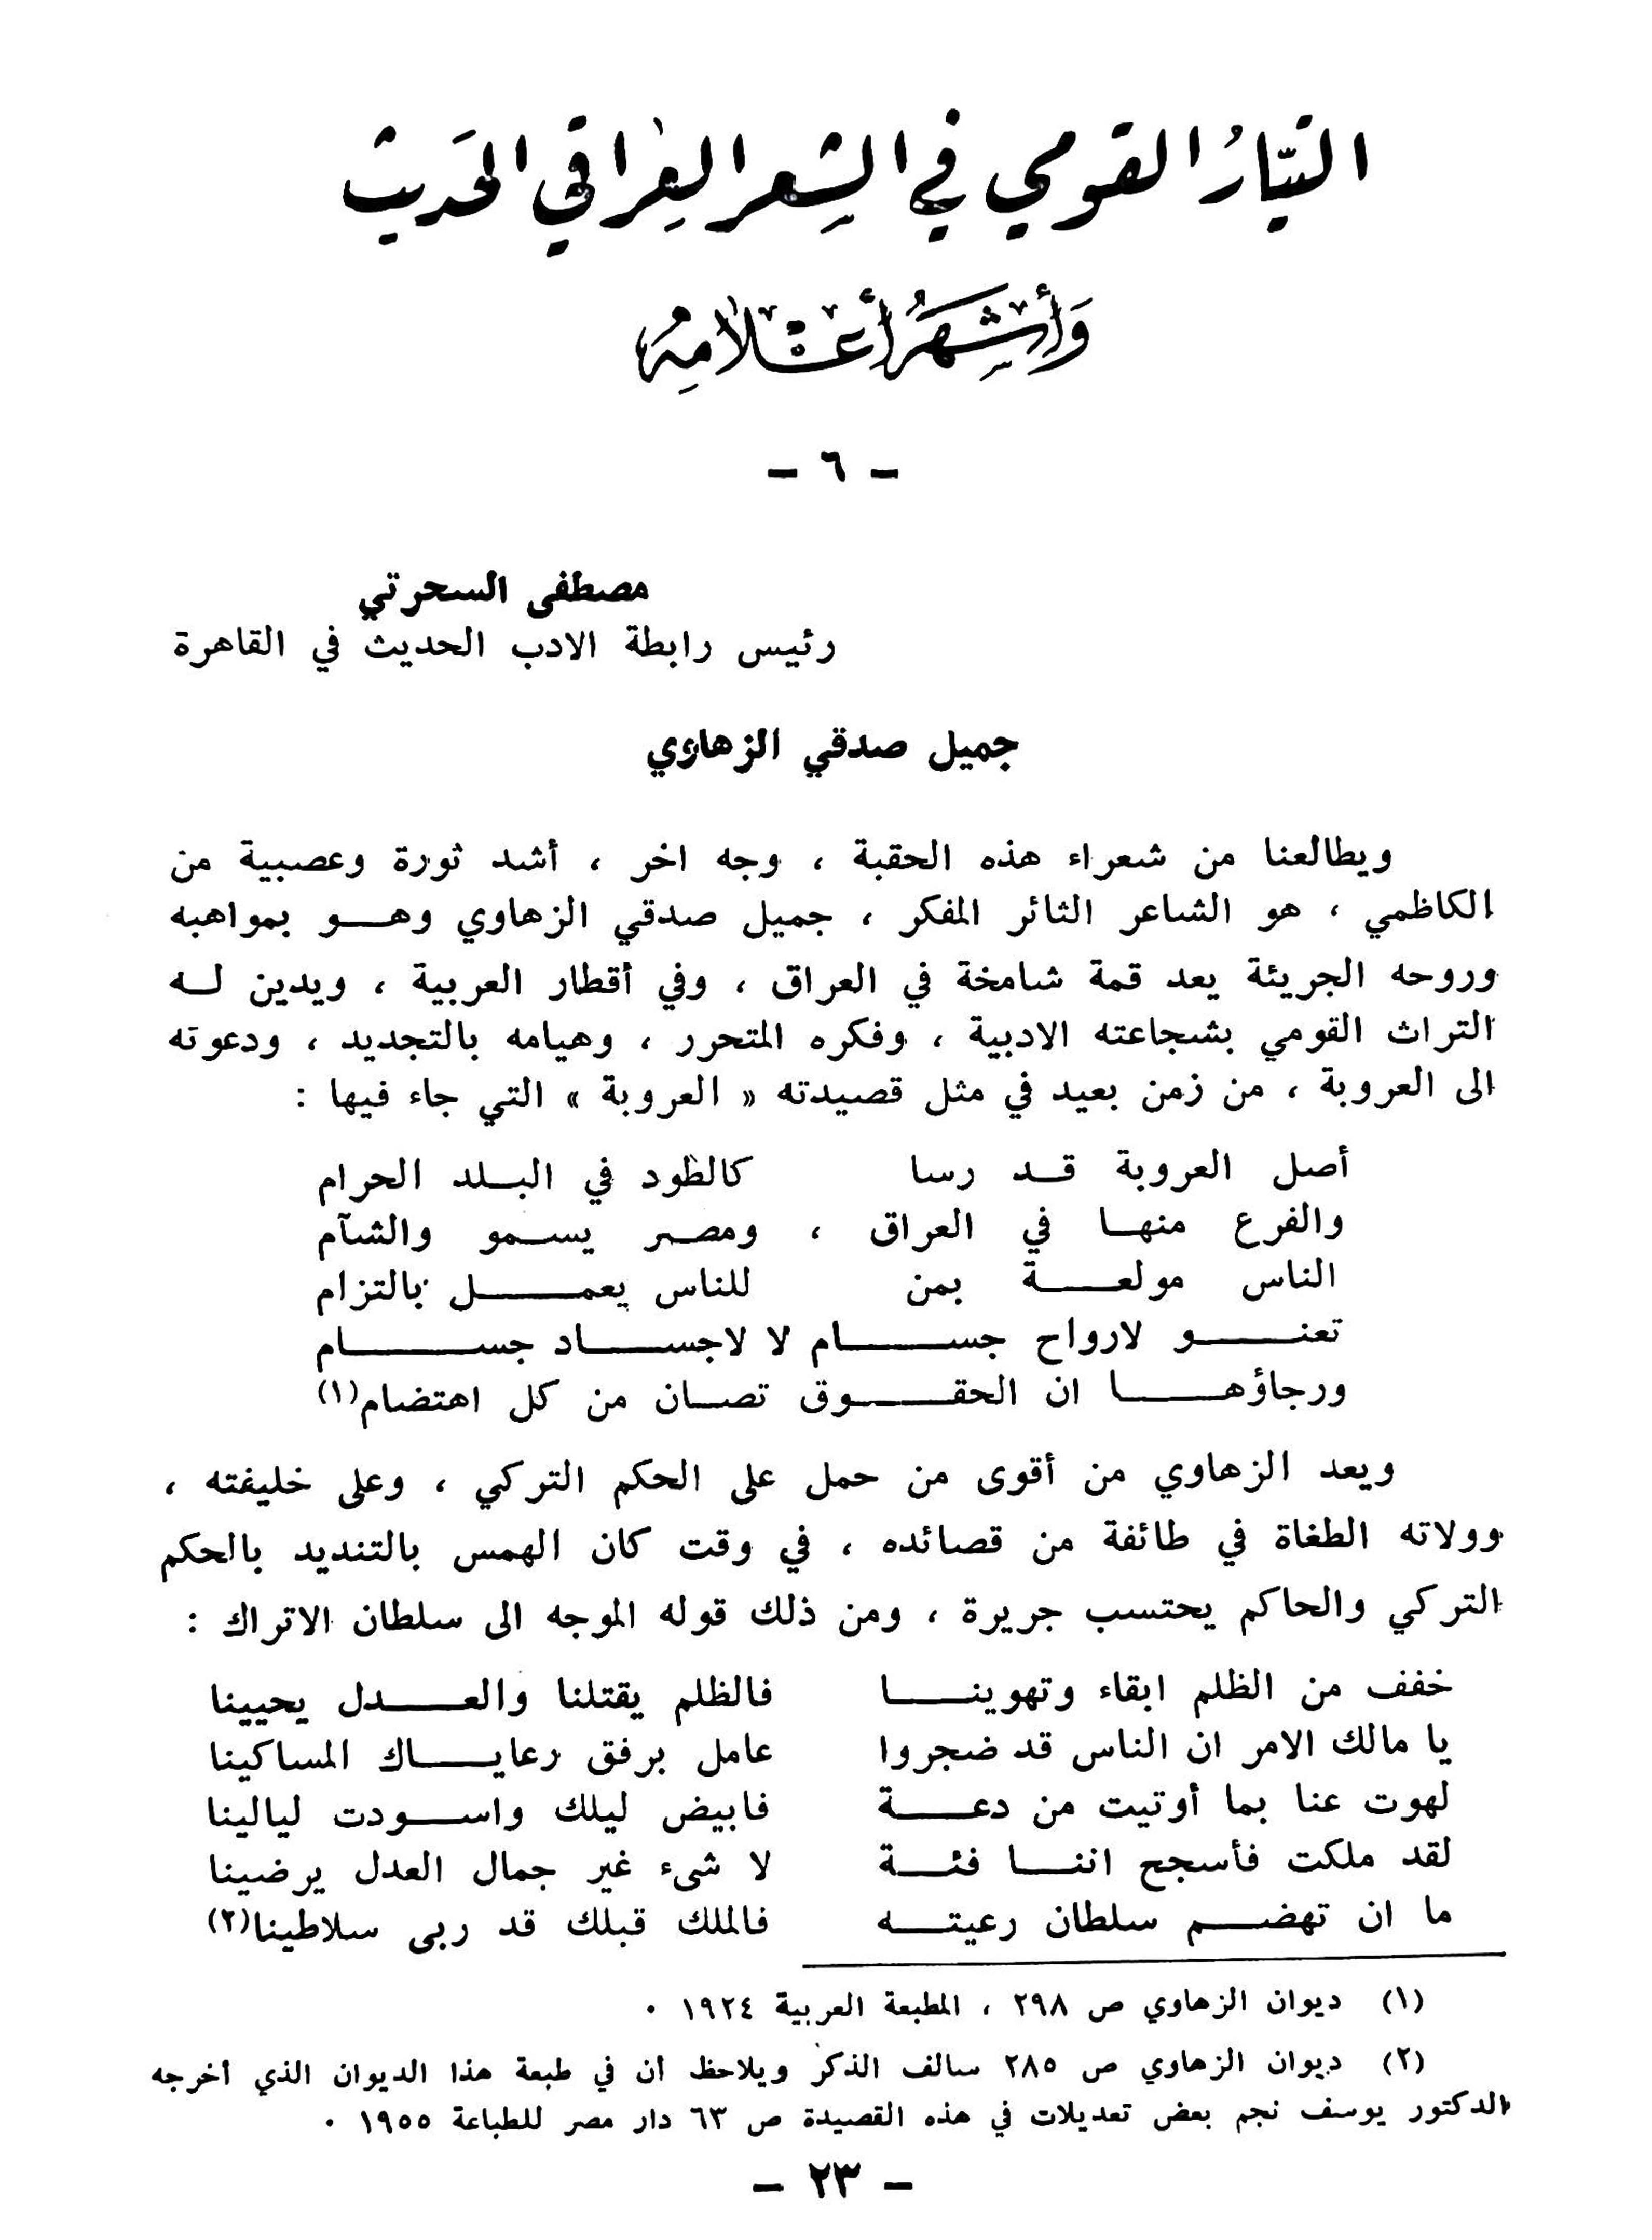 التيّارُ القومي في الشِعر العِراقي الحَديث
وَأَشهَرُ أَعْلامِه
- ٦ -
مصطفى السحرتي
رئيس رابطة الادب الحديث في القاهرة
جميل صدقي الزهاوي
ويطالعنا من شعراء هذه الحقبة ، وجه اخر ، أشد ثورة وعصبية من
الكاظمي ، هو الشاعر الثائر المفكر ، جميل صدقي الزهاوي وهو بمواهبه
وروحه الجريئة يعد قمة شامخة في العراق ، وفي أقطار العربية ، ويدين له
التراث القومي بشجاعته الادبية ، وفكره المتحرر ، وهيامه بالتجديد ، ودعوته
الى العروبة ، من زمن بعيد في مثل قصيدته « العروبة » التي جاء فيها :
أصل العروبة قد رسا كالطود في البلد الحرام
والفرع منها في العراق ، ومصر يسمو والشآم
الناس مولعة بمن للناس يعمل بالتزام
تعنو لارواح جسام لا لاجساد جسام
ورجاؤها ان الحقوق تصان من كل اهتضام(١)
ويعد الزهاوي من أقوى من حمل على الحكم التركي ، وعلى خليفته ،
وولاته الطغاة في طائفة من قصائده ، في وقت كان الهمس بالتنديد بالحكم
التركي والحاكم يحتسب جريرة ، ومن ذلك قوله الموجه الى سلطان الاتراك :
خفف من الظلم ابقاء وتهوينا فالظلم يقتلنا والعدل يحيينا
يا مالك الامر ان الناس قد ضجروا عامل برفق رعاياك المساكينا
لهوت عنا بما أوتيت من دعة فابيض ليلك واسودت ليالينا
لقد ملكت فأسجح اننا فئة لا شىء غير جمال العدل يرضينا
ما ان تهضم سلطان رعيته فالملك قبلك قد ربى سلاطينا(٢)
(١) ديوان الزهاوي ص ٢٩٨ ، المطبعة العربية ١٩٢٤ .
(٢) ديوان الزهاوي ص ٢٨٥ سالف الذكر ويلاحظ أن في طبعة هذا الديوان الذي أخرجه
الدكتور يوسف نجم بعض تعديلات في هذه القصيدة ص ٦٣ دار مصر للطباعة ١٩٥٥ .
- ٢٣ -